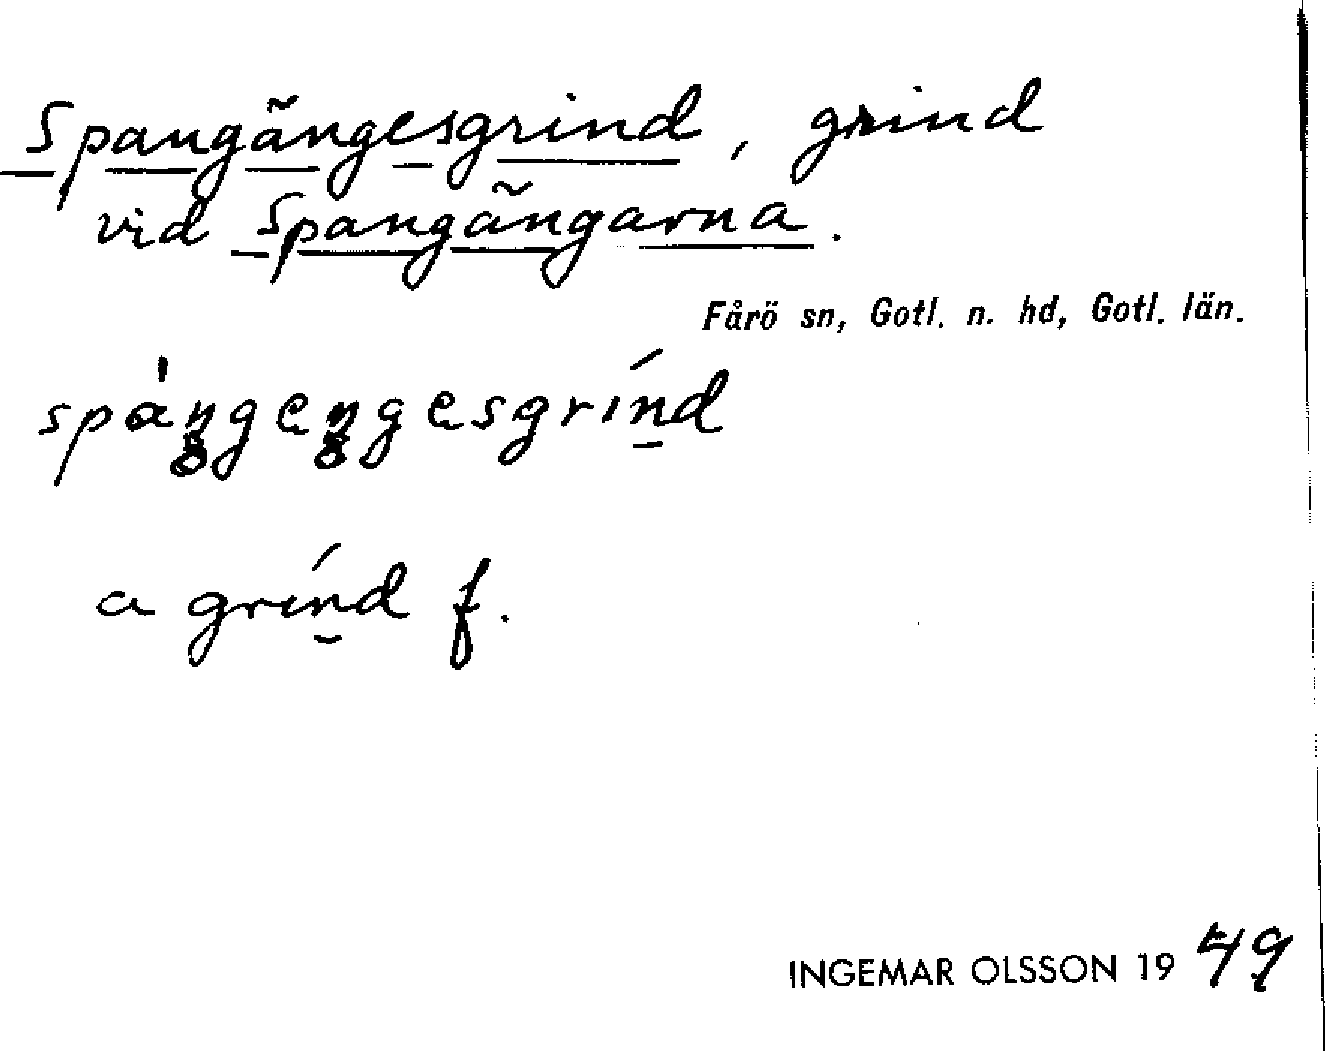 Spangängesgrind, grind
vid Spangängarna.
Fårö sn, Gotl. n. hd, Gotl. län.
a grínd f.
INGEMAR OLSSON 1949